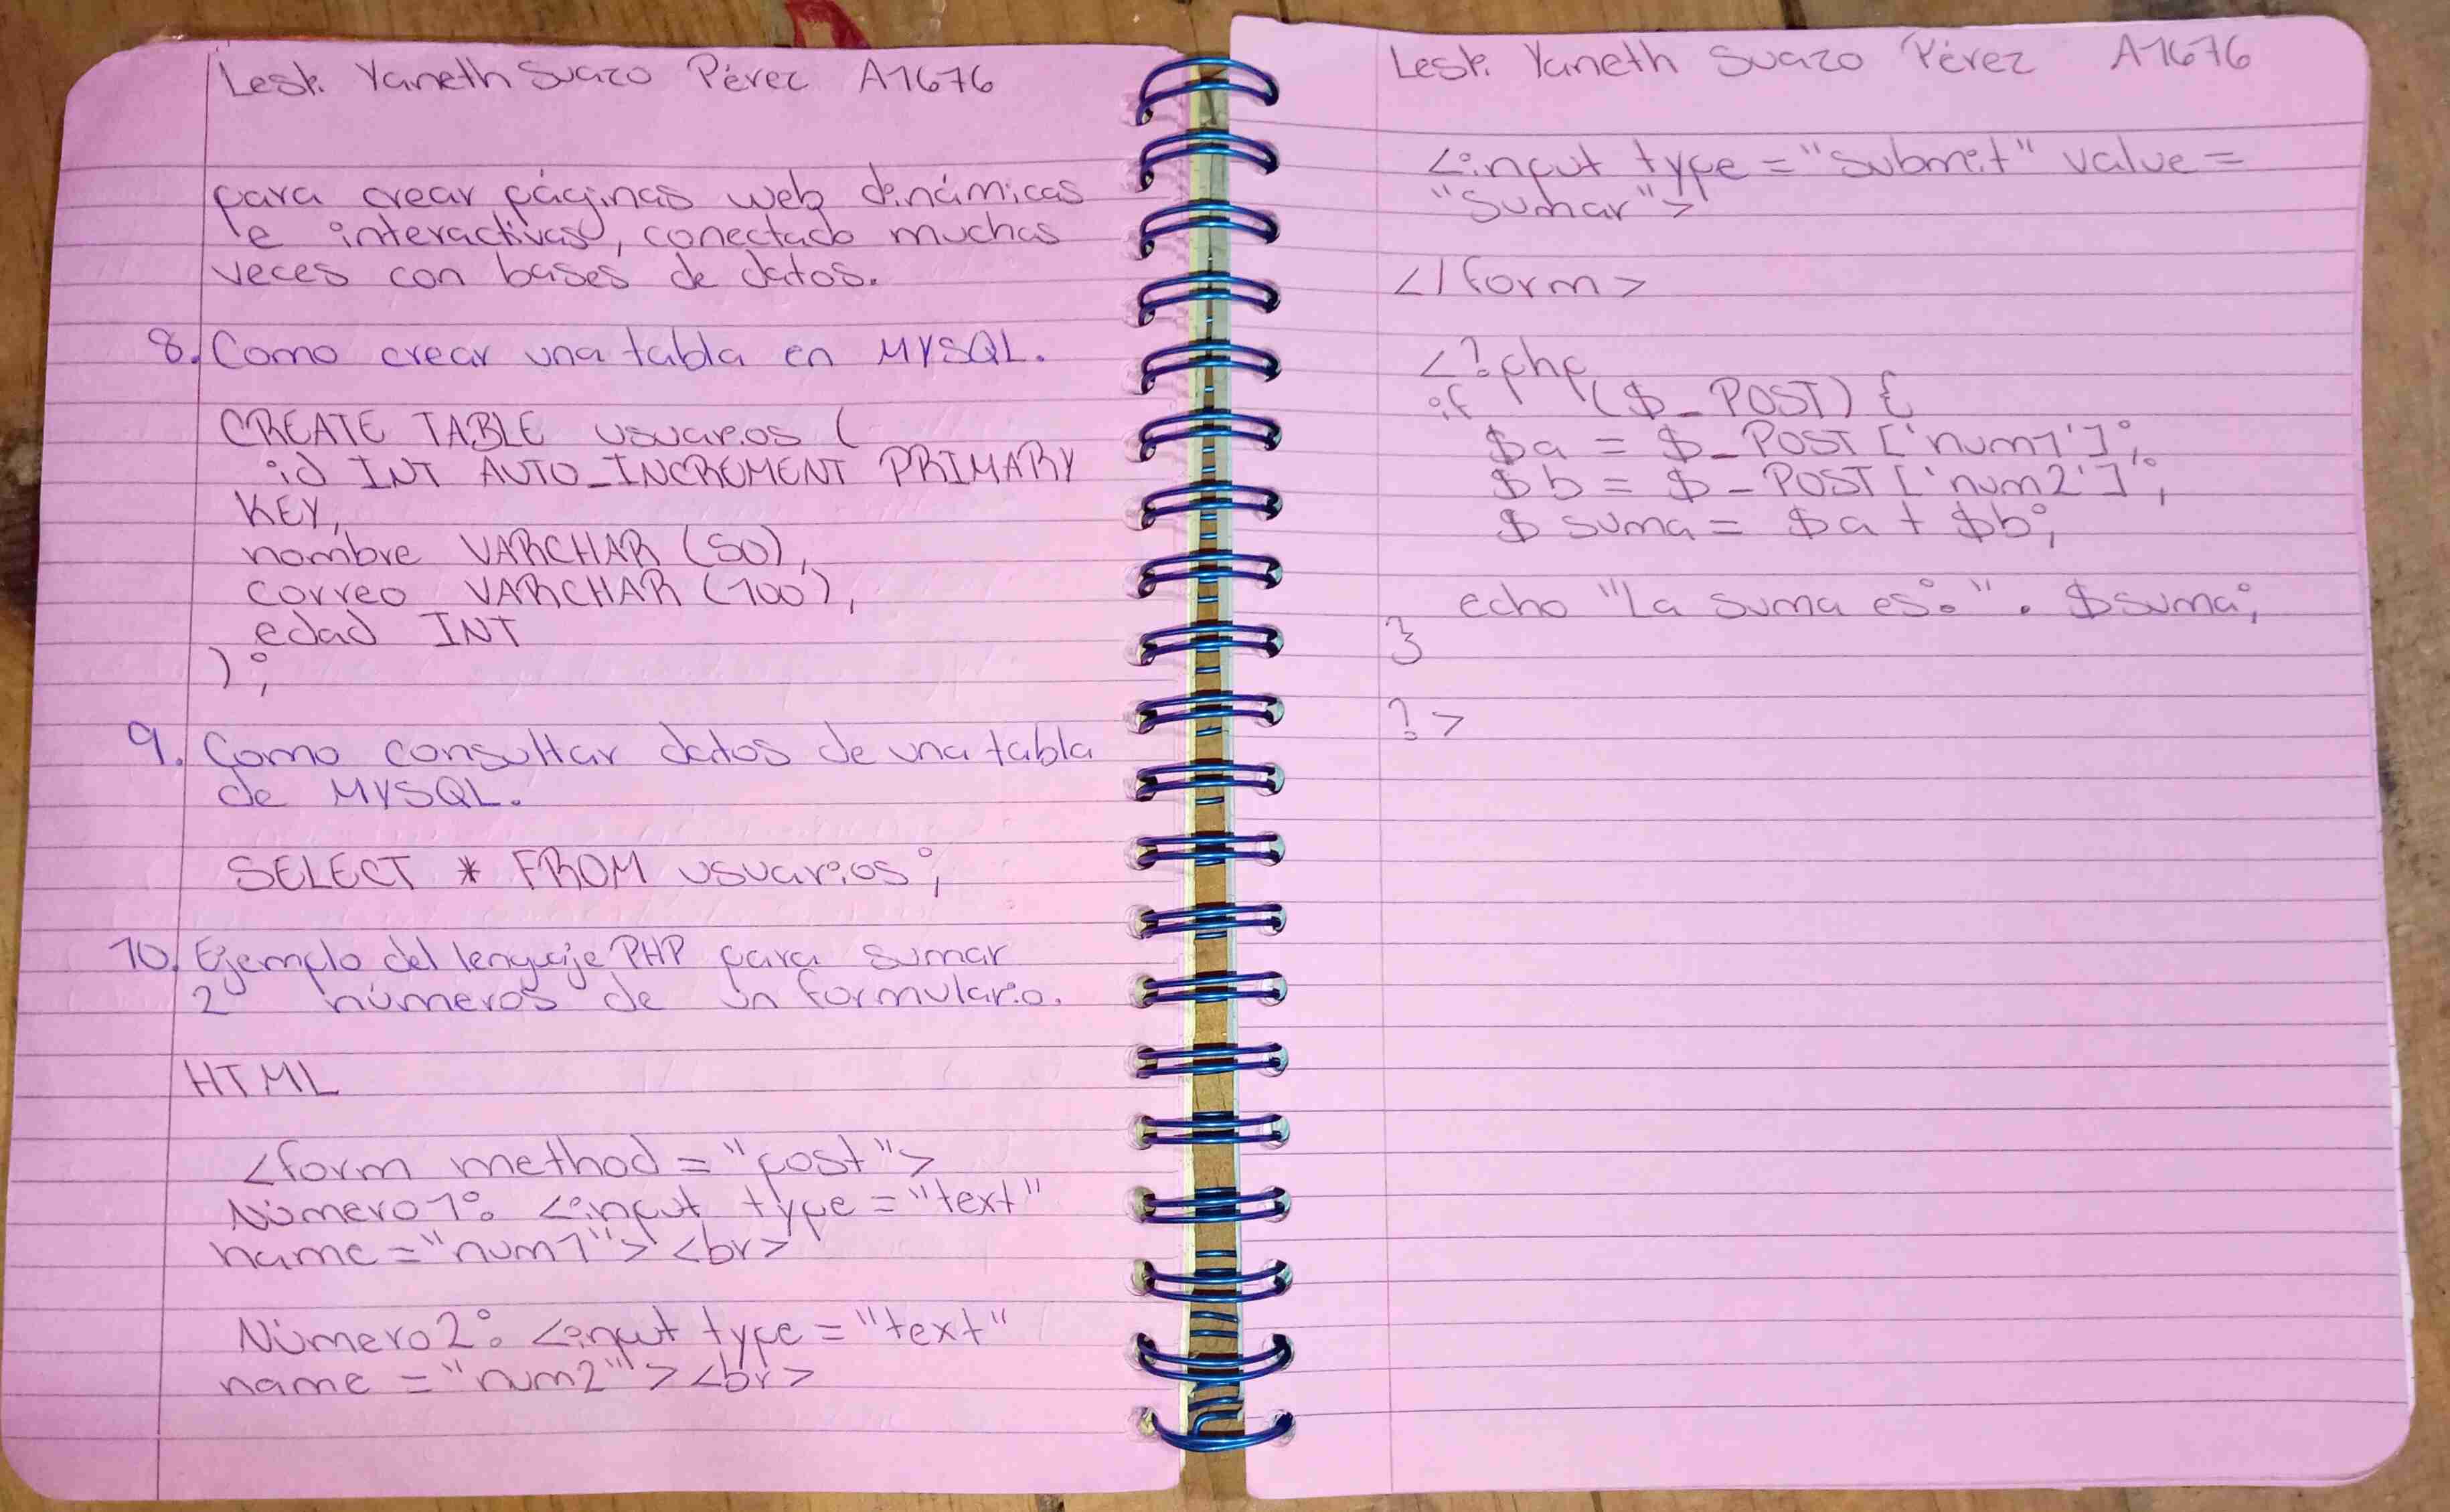 Leski Yaneth Suazo Pérez A1676
para crear páginas web dinámicas
e interactivas, conectado muchas
veces con bases de datos.
8. Como crear una tabla en MYSQL.
CREATE TABLE usuarios (
id INT AUTO_INCREMENT PRIMARY
KEY,
nombre VARCHAR (50),
correo VARCHAR (100),
edad INT
);
9. Como consultar datos de una tabla
de MYSQL.
SELECT * FROM usuarios;
10. Ejemplo del lenguaje PHP para sumar
2 números de un formulario.
HTML
<form method = "post">
Número 1: <input type = "text"
name = "num1"> <br>
Número 2: <input type = "text"
name = "num2"> <br>
Leski Yaneth Suazo Pérez A1676
<input type = "submit" value =
"Sumar">
</form>
<?php
if ($_POST) {
$a = $_POST ['num1'];
$b = $_POST ['num2'];
$suma = $a + $b;
echo "La suma es: " . $suma;
}
?>